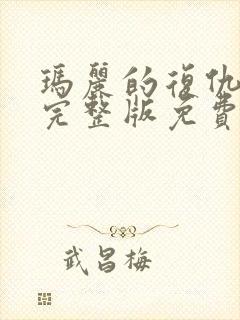 瑪麗的復仇
完整版免費
武昌梅